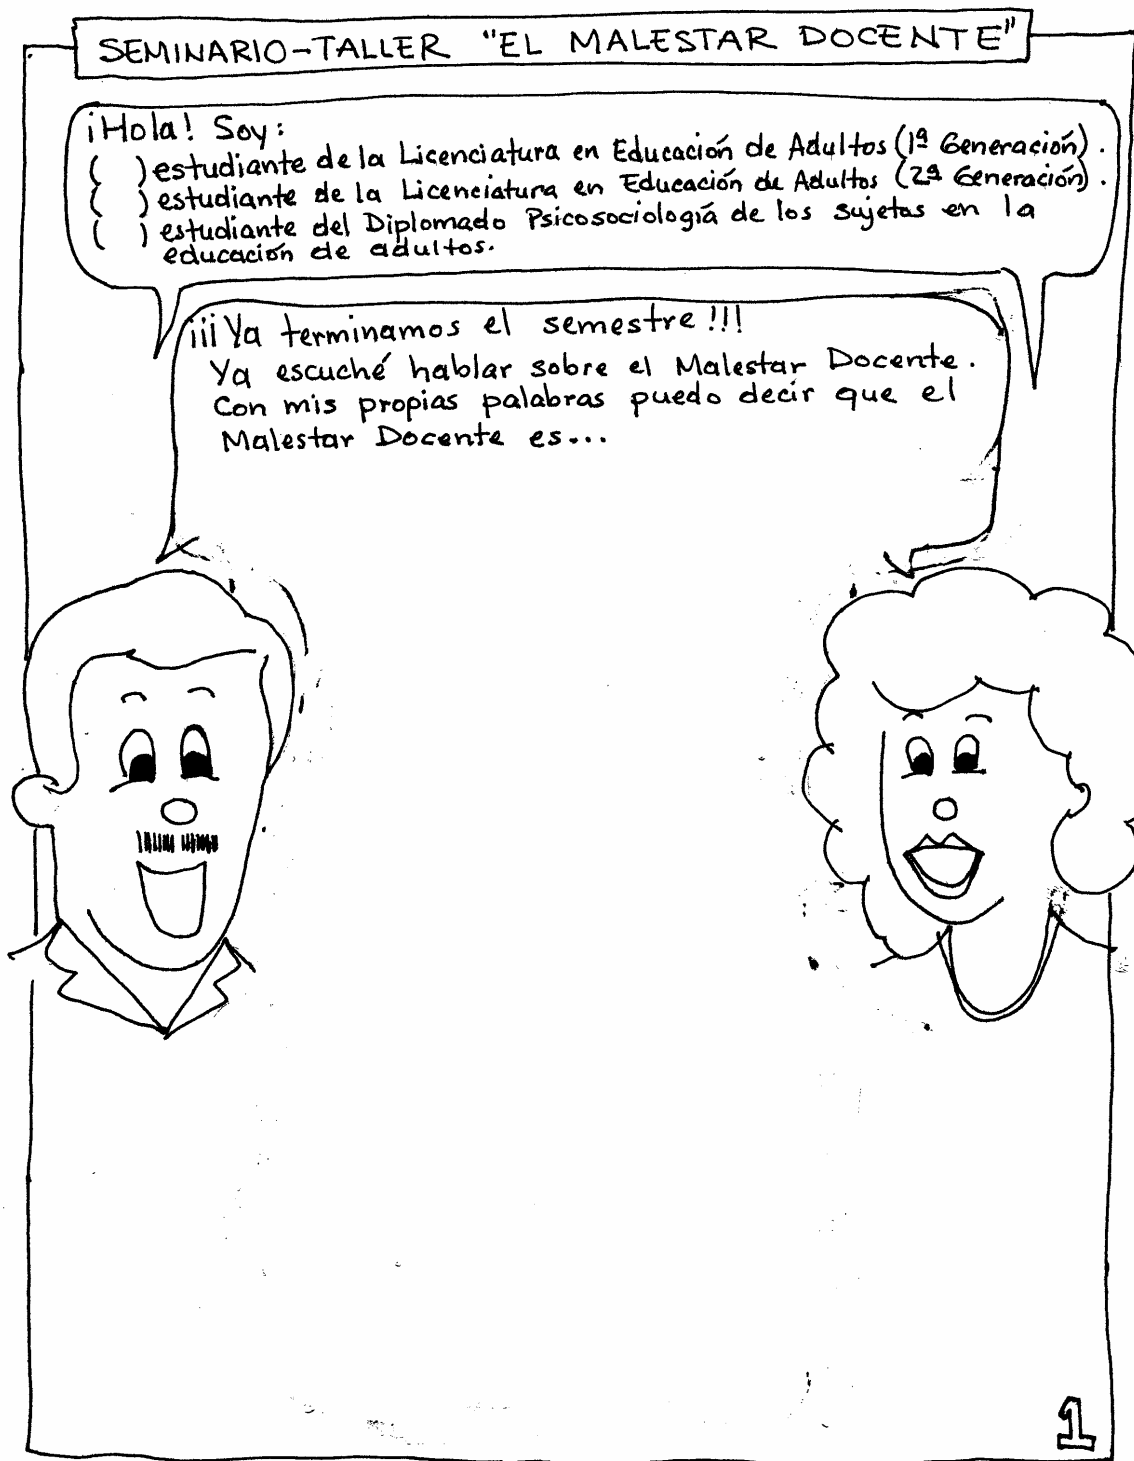 SEMINARIO-TALLER "EL MALESTAR DOCENTE"
¡Hola! Soy:
( ) estudiante de la Licenciatura en Educación de Adultos (1ª Generación).
( ) estudiante de la Licenciatura en Educación de Adultos (2ª Generación).
( ) estudiante del Diplomado Psicosociología de los sujetos en la
educación de adultos.
¡¡¡Ya terminamos el semestre!!!
Ya escuché hablar sobre el Malestar Docente.
Con mis propias palabras puedo decir que el
Malestar Docente es...
1